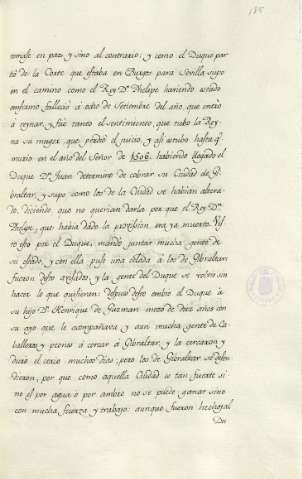 185
en paz y sino al contrario; y como el Duque par
tó de la Corte que estaba en Burgos para Sevilla supo
en el camino como el Rey Dn. Phelipe haviendo estado
enfermo falleció á ocho de Setiembre del año que entró
á reynar, y fué tanto el sentimiento que tubo la Rey
na su muger que perdió el juicio, y asi estubo hasta q.
murio en el año del Señor de 1506. habiendo llegado el
Duque Dn. Juan determino de cobrar su Ciudad de Gi
braltar, y supo como los de la Ciudad se habian altera
do, diciendo que no querian darla por que el Rey Dn.
Phelipe, que habia dado la provision era ya muerto. Vis
to esto por el Duque, mandó juntar mucha gente de
su estado, y con ella puso una celada á los de Gibraltar
fueron desto avisados y la gente del Duque se volvió sin
hacer lo que quisieran: después desto embio el Duque á
su hijo Dn. Henrique de Guzman mozo de diez años con
su ayo que le acompañaba y aun mucha gente de Ca
balleros, y peones á cercar á Gibraltar, y la cercaron y
duró el cerco muchos dias; pero los de Gibraltar se defen
dieron, por que como aquella Ciudad es tan fuerte si
no es por agua o por ambre no se puede ganar sino
con mucha fuerza y trabajo: aunque fueron hechos